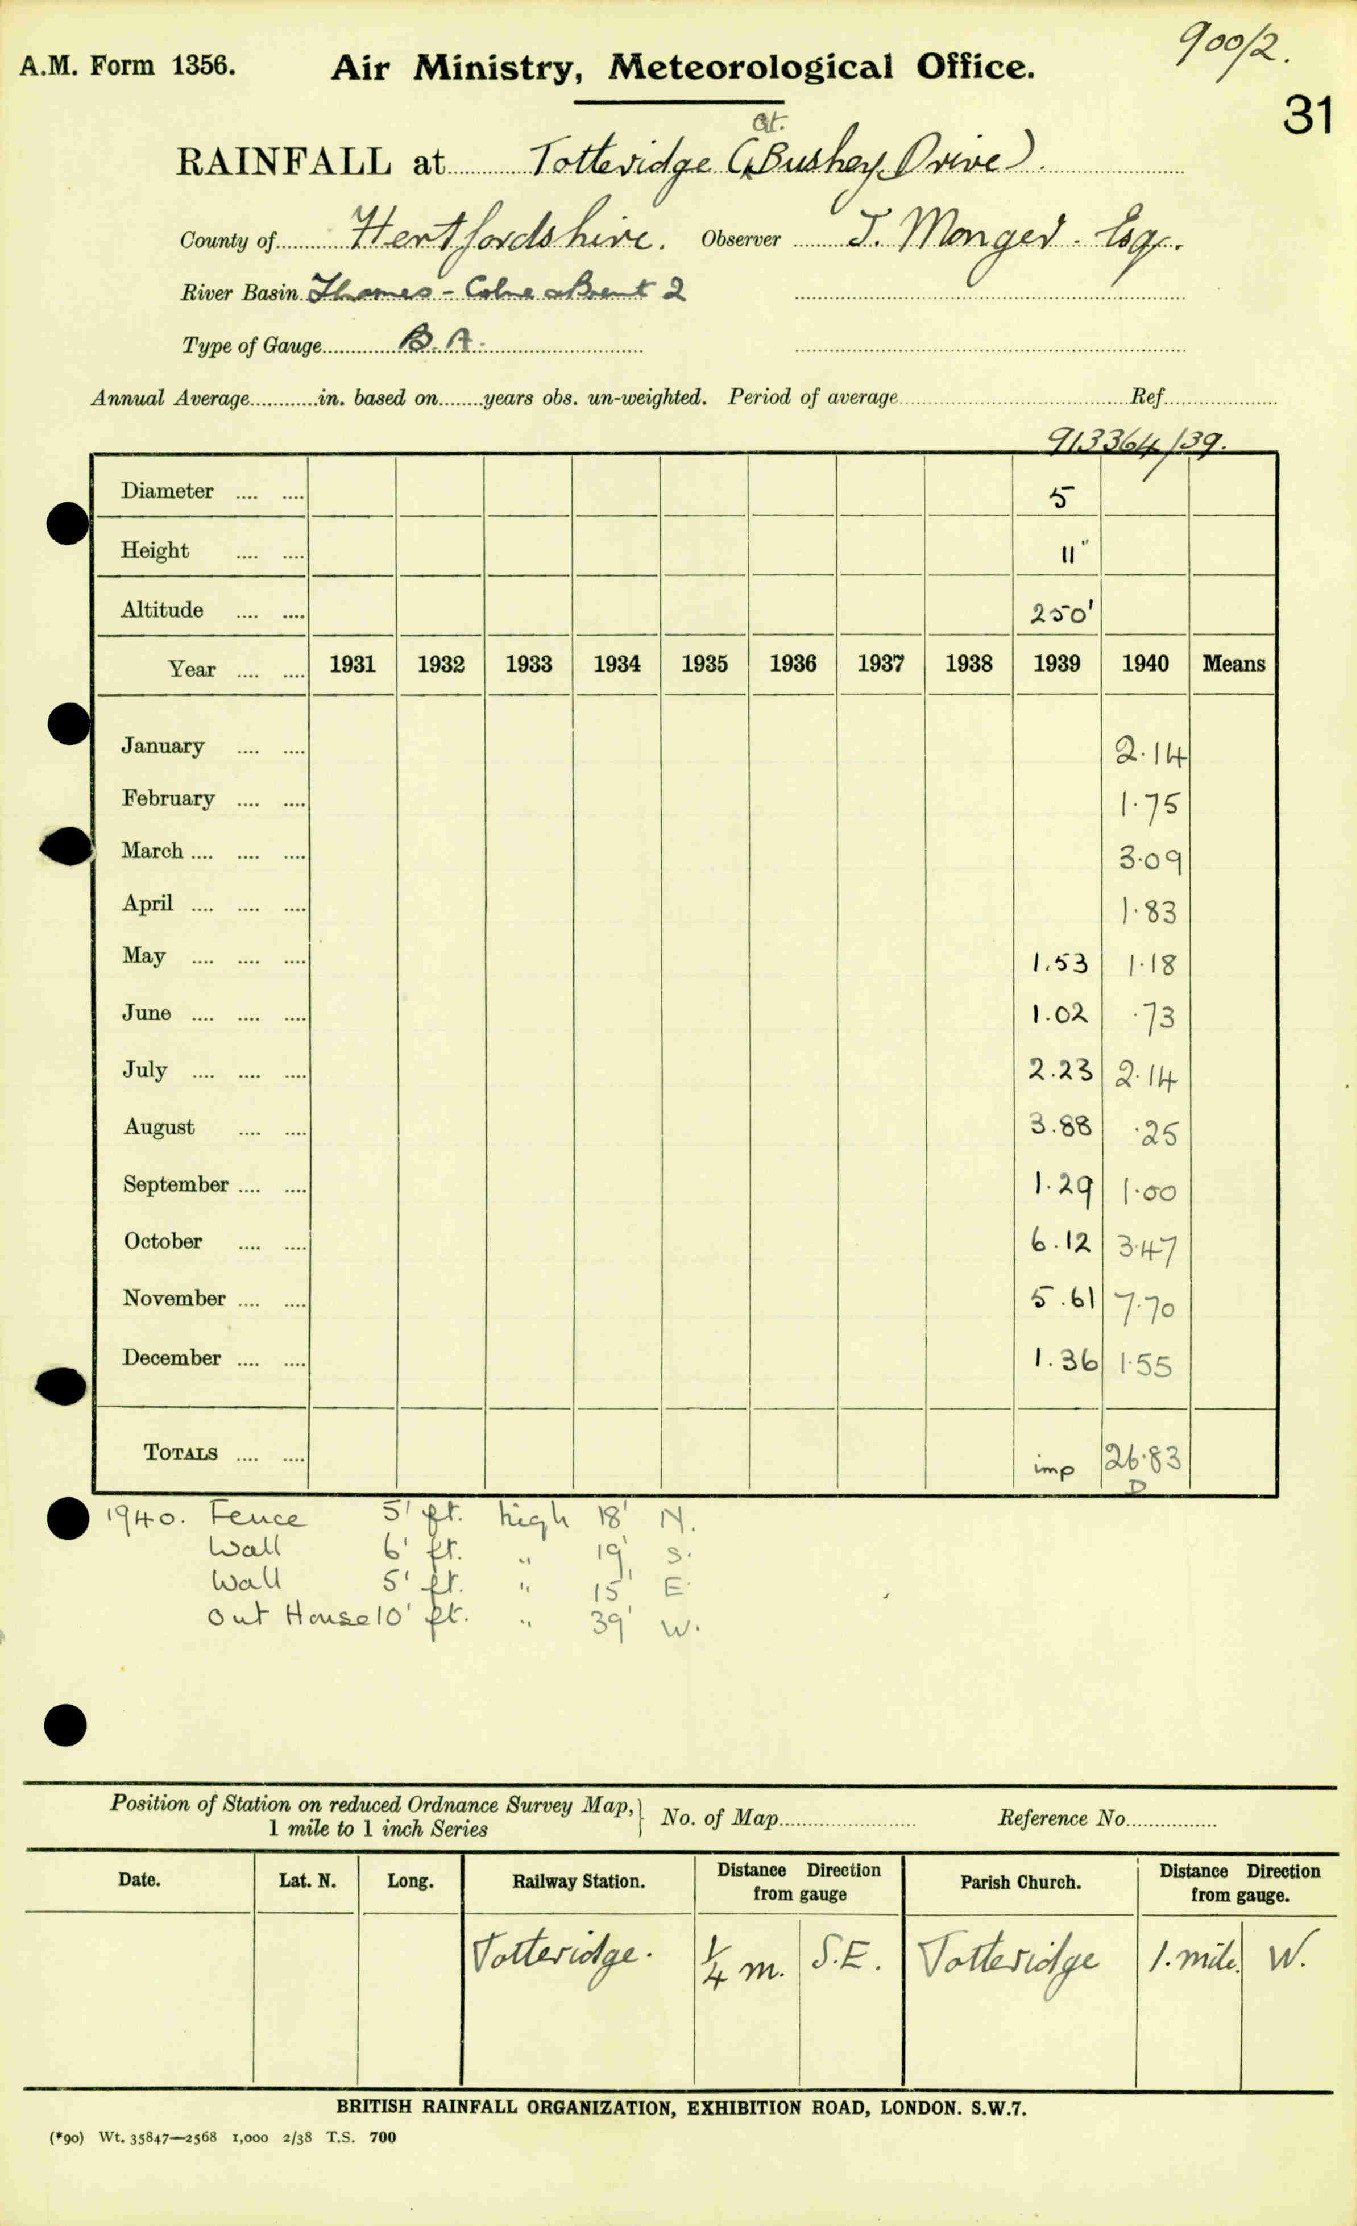 900/2.
A.M. Form 1356. Air Ministry, Meteorological Office.
31
Gt.
RAINFALL at Totteridge (Bushey Drive).
County of Hertfordshire. Observer J. Monger. Esq.
River Basin Thames - Colne & Brent 2
Type of Gauge B.A.
Annual Average in. based on years obs. un-weighted. Period of average Ref.
913364/39.
Diameter 5
Height 11"
Altitude 250'
Year 1931 1932 1933 1934 1935 1936 1937 1938 1939 1940 Means
January 2.14
February 1.75
March 3.09
April 1.83
May 1.53 1.18
June 1.02 .73
July 2.23 2.14
August 3.88 .25
September 1.29 1.00
October 6.12 3.47
November 5.61 7.70
December 1.36 1.55
TOTALS imp 26.83
D
1940. Fence 5' ft. high 18' N.
Wall 6' ft. " 19' S.
Wall 5' ft. " 15' E.
Out House 10' ft. " 39' W.
Position of Station on reduced Ordnance Survey Map, } No. of Map Reference No.
1 mile to 1 inch Series
Date. Lat. N. Long. Railway Station. Distance Direction Parish Church. Distance Direction
from gauge from gauge.
Totteridge. 1/4 m. S.E. Totteridge 1. mile. W.
BRITISH RAINFALL ORGANIZATION, EXHIBITION ROAD, LONDON. S.W.7.
(*90) Wt. 35847—2568 1,000 2/38 T.S. 700